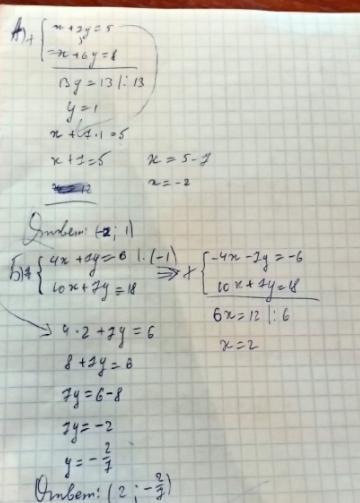 А)+ { x + 7y = 5
-x + 6y = 8
13y = 13 |: 13
y = 1
x + 7·1 = 5
x + 7 = 5
x = 5 - 7
x = -2
Ответ: (-2; 1)
Б) { 4x + 7y = 6 |·(-1)
10x + 7y = 18
=> + { -4x - 7y = -6
10x + 7y = 18
6x = 12 |: 6
x = 2
4·2 + 7y = 6
8 + 7y = 6
7y = 6 - 8
7y = -2
y = -2/7
Ответ: (2; -2/7)